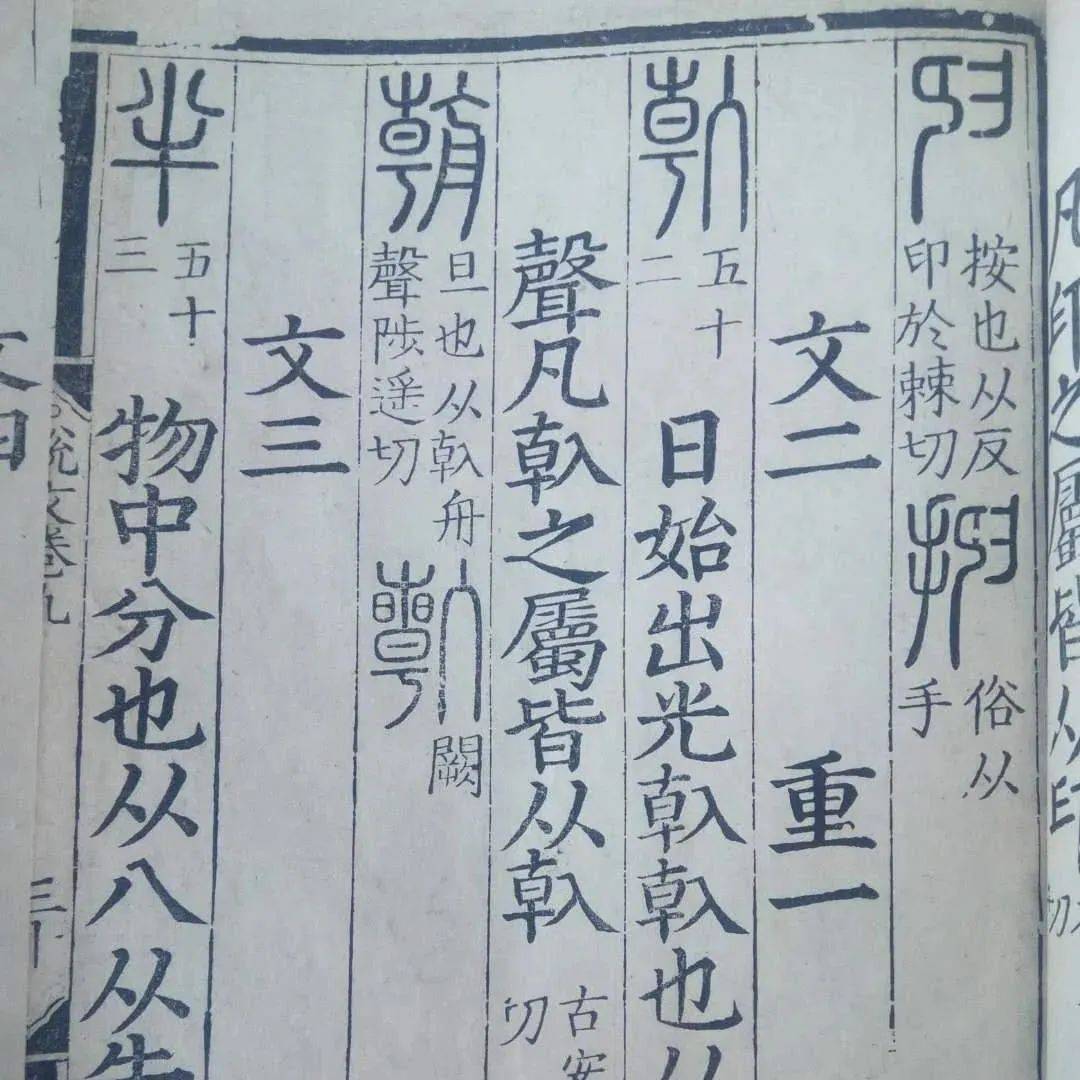 凡印之屬皆从印
归按也从反印於棘切抑俗从手
文二 重一
倝五十二 日始出光倝倝也从
聲凡倝之屬皆从倝古安切
朝旦也从倝舟聲陟遥切 闕
文三
半五十三 物中分也从八从牛
說文卷九 三十